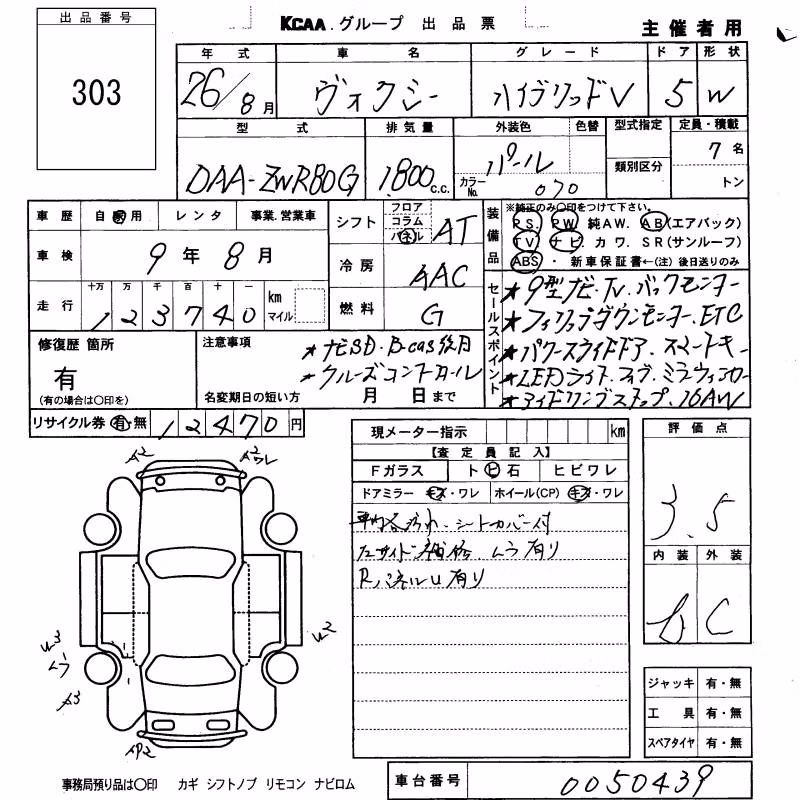 出品番号
303
KCAA.グループ 出品票
主催者用
年式 車名 グレード ドア 形状
26/8月 ヴォクシー ハイブリッドV 5 W
型式 排気量 外装色 色替 型式指定 定員・積載
DAA-ZWR80G 1,800c.c. パール 7名
カラーNo. 070 類別区分 トン
車歴 自家用 レンタ 事業.営業車
車検 9年8月
走行 十万 万 千 百 十 一
123740 km マイル
シフト フロア コラム パネル AT
冷房 AAC
燃料 G
装備品
※純正のみ〇印をつけて下さい。
PS. PW 純AW. AB(エアバック)
TV ナビ カワ. SR(サンルーフ)
ABS ・ 新車保証書←(注)後日送りのみ
セールスポイント
★9型ナビ.TV.バックモニター
★フィリップダウンモニター.ETC
★パワースライドドア.スマートキー
★LEDライト
★アイドリングストップ.16AW
修復歴 箇所
有
(有の場合は〇印を)
注意事項
★ナビSD.B-cas後日
★クルーズコントロール
名変期日の短い方 月 日まで
リサイクル券 有・無 12470円
現メーター指示 km
【査定員記入】
Fガラス ト ビ 石 ヒビワレ
ドアミラー キズ・ワレ ホイール(CP) キズ・ワレ
シートカバー付
ムラ有り
Rパネルu有り
評価点
3.5
内装 外装
b C
A2
A2ワレ
u3
ムラ
A3
u2
AP2
ジャッキ 有・無
工具 有・無
スペアタイヤ 有・無
事務局預り品は〇印 カギ シフトノブ リモコン ナビロム
車台番号 0050439